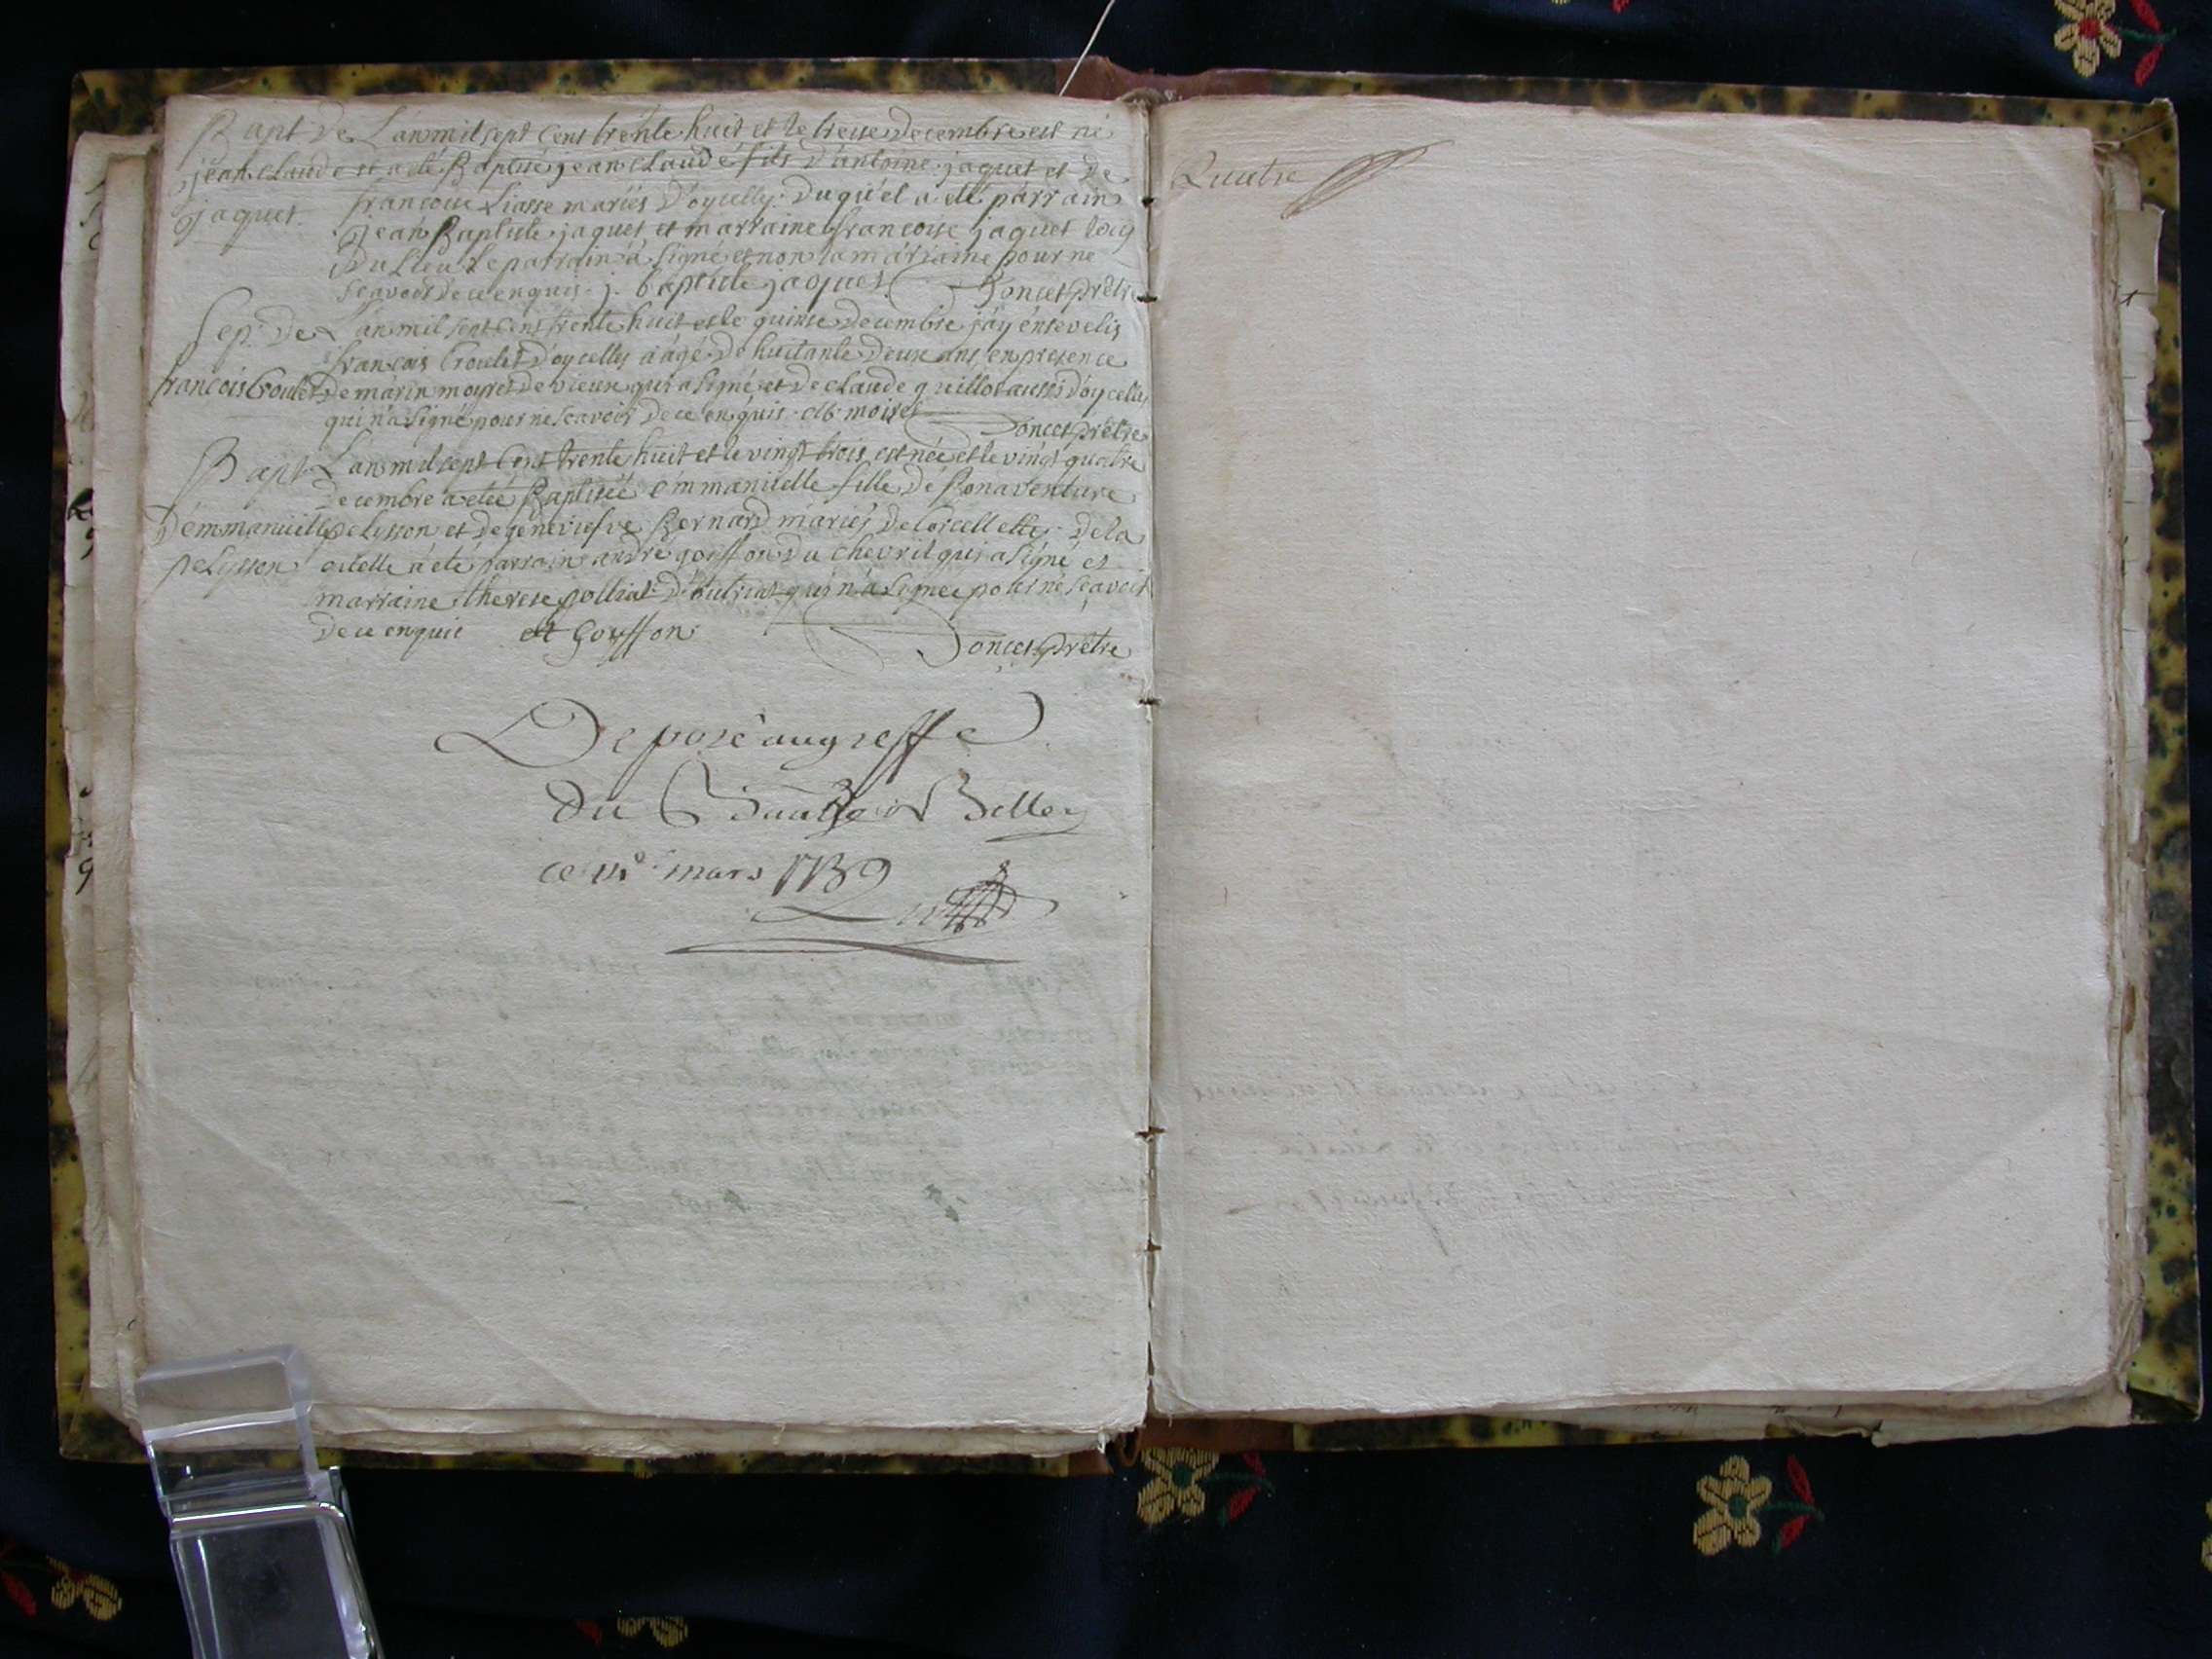 Bapt. de L'an mil sept cens trente huit et le treise decembre est né
jean claude et a eté Baptisé jean claude fils d'antoine jaquet et de
jaquet. francoise Liasse mariés d'oycelly. duquel a eté parrain
jean Baptiste jaquet et marraine francoise jaquet tous
du Lieu le parrain à signé et non la marraine pour ne
scavoir de ce enquis. j. baptiste jaquet Poncet prêtre
Sep. de L'an mil sept cens trente huit et le quinse decembre j'ay énsevelis
francois Croulet d'oycelly à agé de huitante deux ans, en presence
francois Croulet de marin moyret de vieux qui a signé et de claude guillot aussi d'oycelly
qui n'a signé pour ne scavoir de ce enquis. M moiret Poncet prêtre
Bapt. L'an mil sept Cens trente huit et le vingt trois est née et le vingt quatre
decembre a eteé Baptisée émmanuelle fille dé Bonaventure
D'émmanuelle pelysson et de geneviefve Bernard mariés de de la
pelysson. à eté parrain andré gouffon du chevril qui a signé et
marraine therese polliat d'outriat qui n'a signee pour ne scavoir
de ce enquis et Gouffon Poncet prêtre
Deposé au greffe
du Bailliage de Belley
ce mars 1739
Quatre